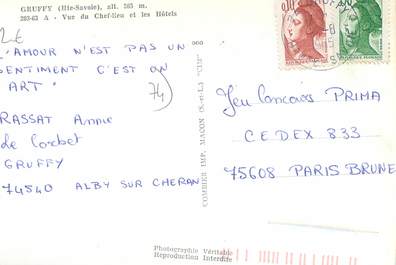 GRUFFY (Hte-Savoie), alt. 565 m.
203-63 A - Vue du Chef-lieu et les Hôtels
2€
L'AMOUR N'EST PAS UN
SENTIMENT C'EST UN
ART.
74
RASSAT Annie
de Corbet
GRUFFY
74540 ALBY SUR CHERAN
COMBIER IMP. MACON (S.-et-L.) "CIM"
Jeu Concours PRIMA
CEDEX 833
75608 PARIS BRUNE
Photographie Véritable
Reproduction Interdite